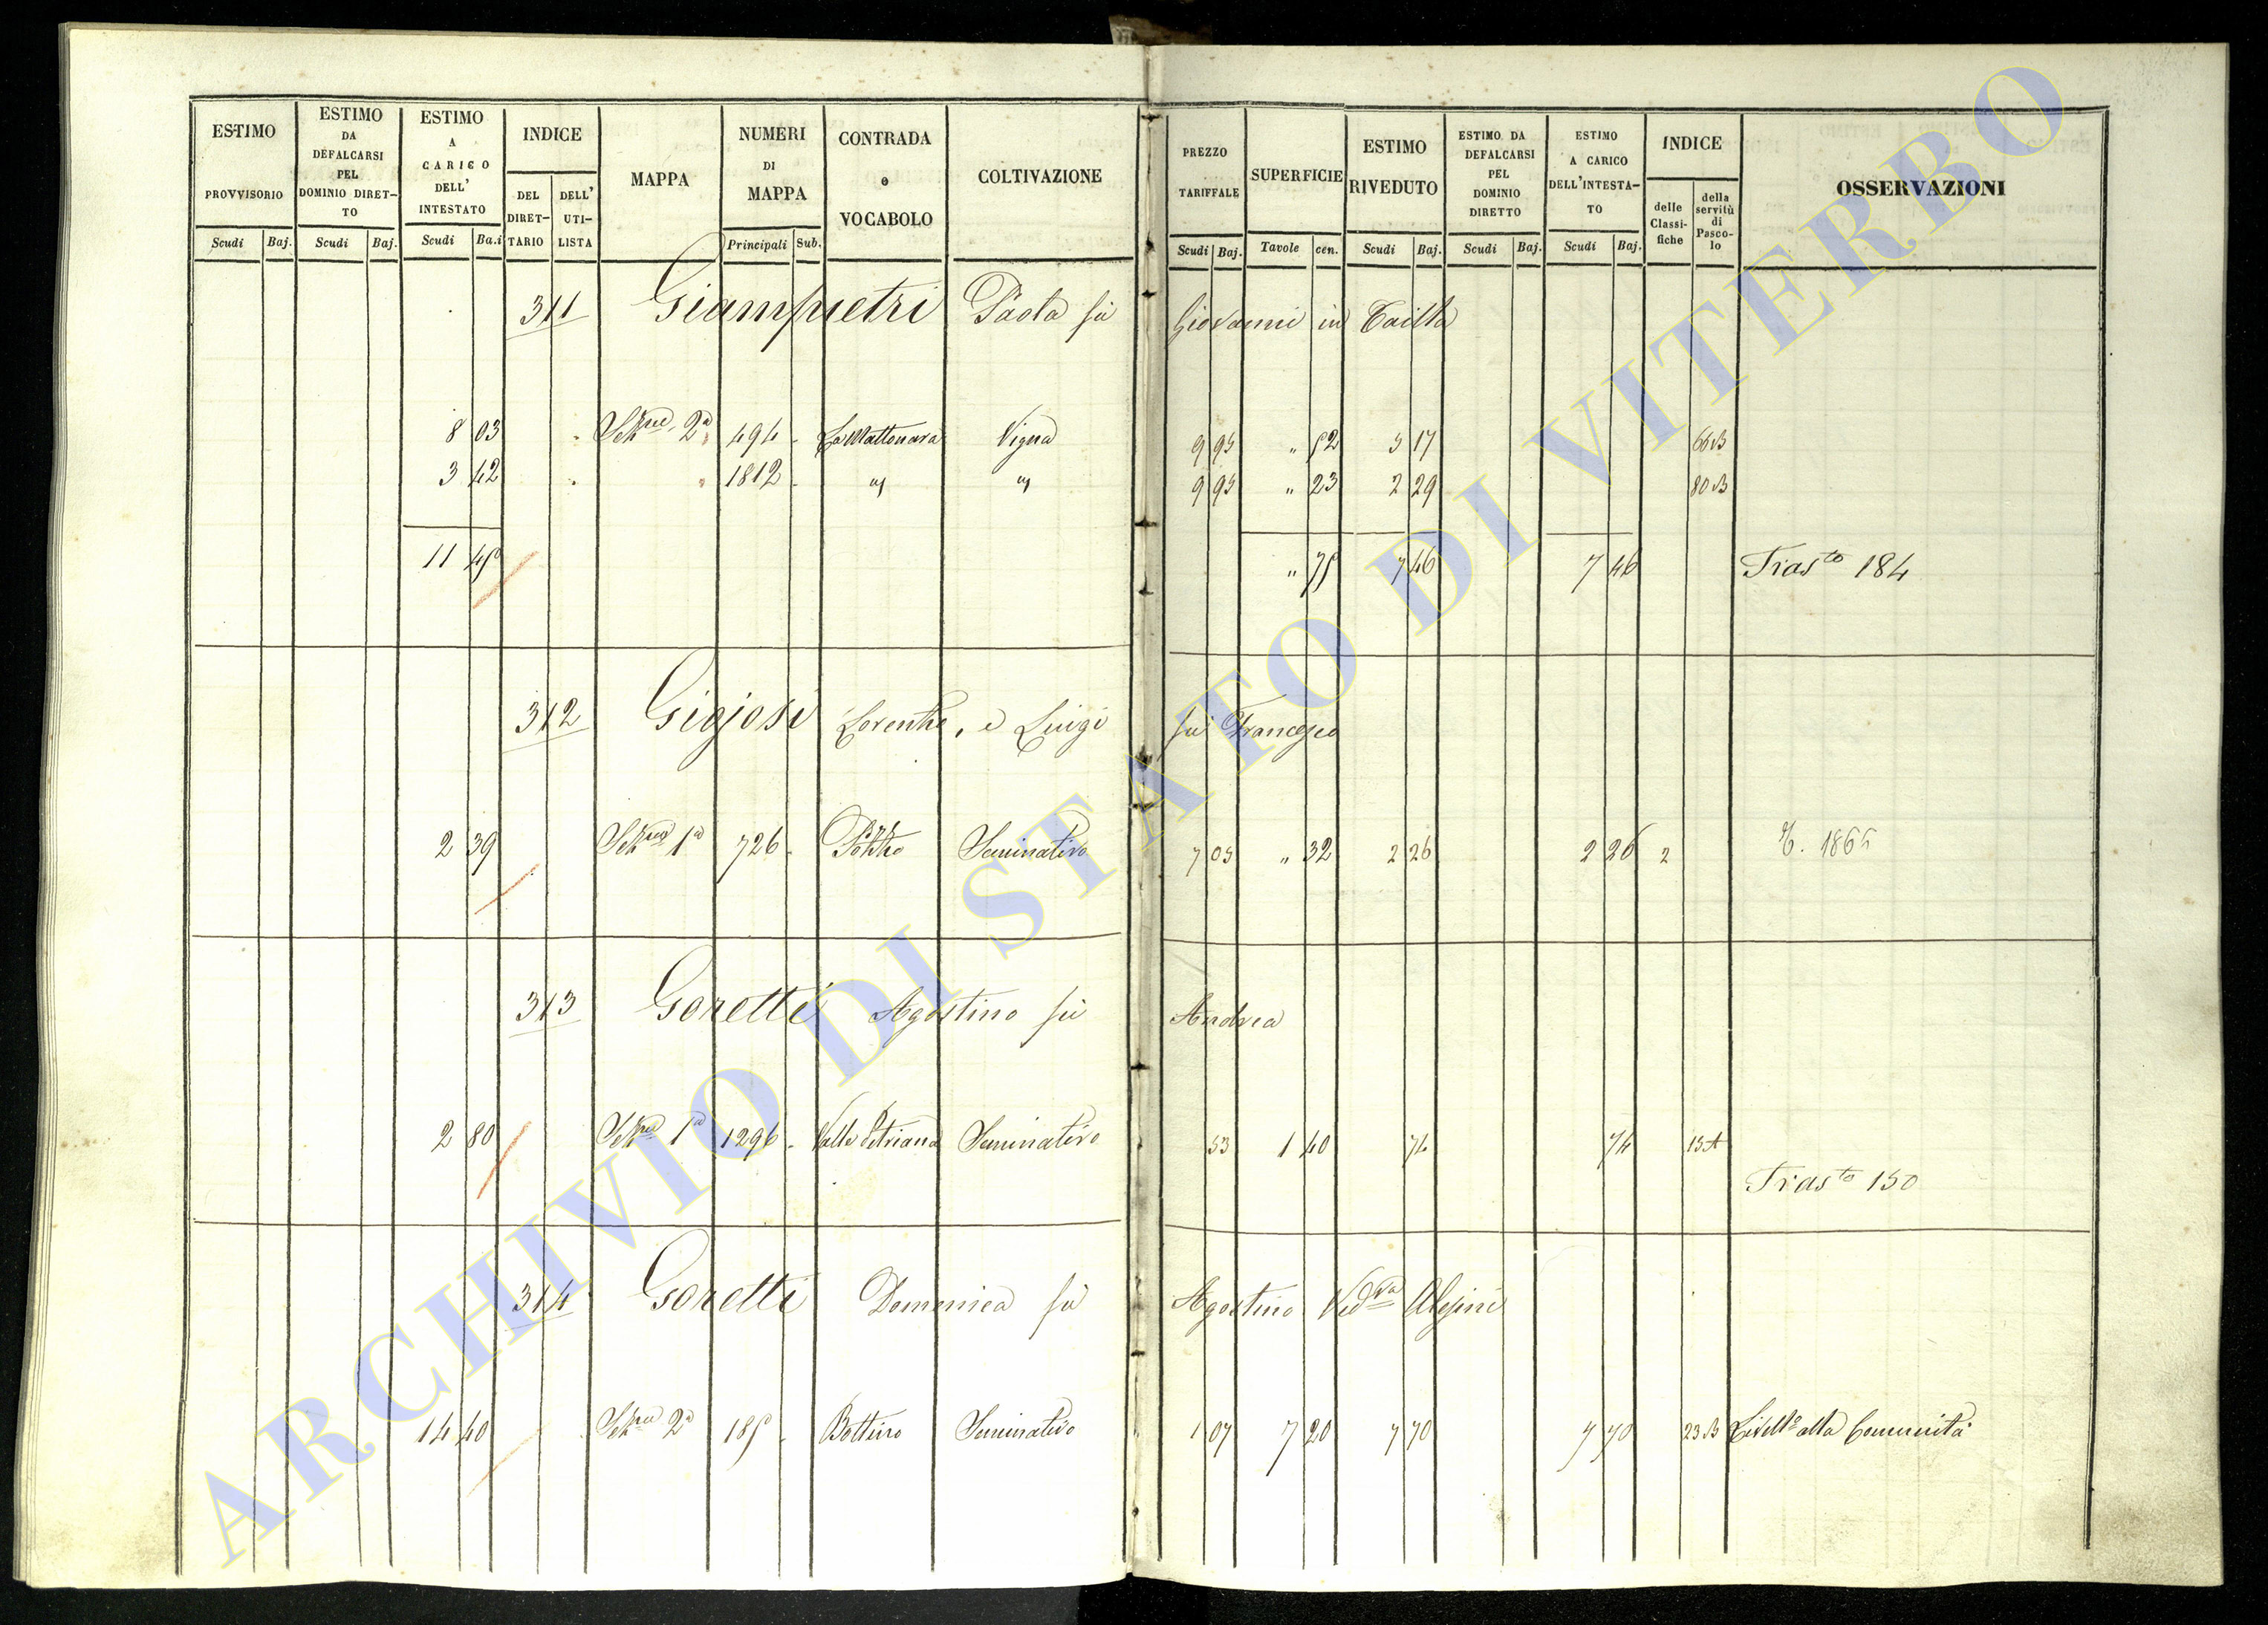 ESTIMO PROVVISORIO ESTIMO DA DEFALCARSI PEL DOMINIO DIRETTO ESTIMO A CARICO DELL' INTESTATO INDICE DEL DIRETTARIO DELL' UTILISTA MAPPA NUMERI DI MAPPA CONTRADA e VOCABOLO COLTIVAZIONE PREZZO TARIFFALE SUPERFICIE ESTIMO RIVEDUTO ESTIMO DA DEFALCARSI PEL DOMINIO DIRETTO ESTIMO A CARICO DELL'INTESTATO INDICE delle Classifiche della servitù di Pascolo OSSERVAZIONI
Scudi Baj. Scudi Baj. Scudi Ba.i Principali Sub. Scudi Baj. Tavole cen. Scudi Baj. Scudi Baj. Scudi Baj.
311 Giampietri Paola fù Giovanni in
8 03 2a 494 La Mattonara Vigna 9 95 " 52 5 17 66 B
3 42 " 1812 " " 9 95 " 23 2 29 80 B
11 45 " 75 7 46 7 46 Tras.to 184
312 Giojosi Lorenzo, e Luigi fù Francesco
2 39 1a 726 Pozzo Seminativo 7 05 " 32 2 26 2 26 2 1865
313 Goretti Agostino fù Andrea
2 80 1a 1296 Valle Petriana Seminativo 53 1 40 74 74 15 A
Tras.to 150
314 Goretti Domenica fù Agostino Ved.va Alesini
14 40 2a 185 Bottino Seminativo 1 07 7 20 7 70 7 70 23 B Livell.o alla Comunità
ARCHIVIO DI STATO DI VITERBO